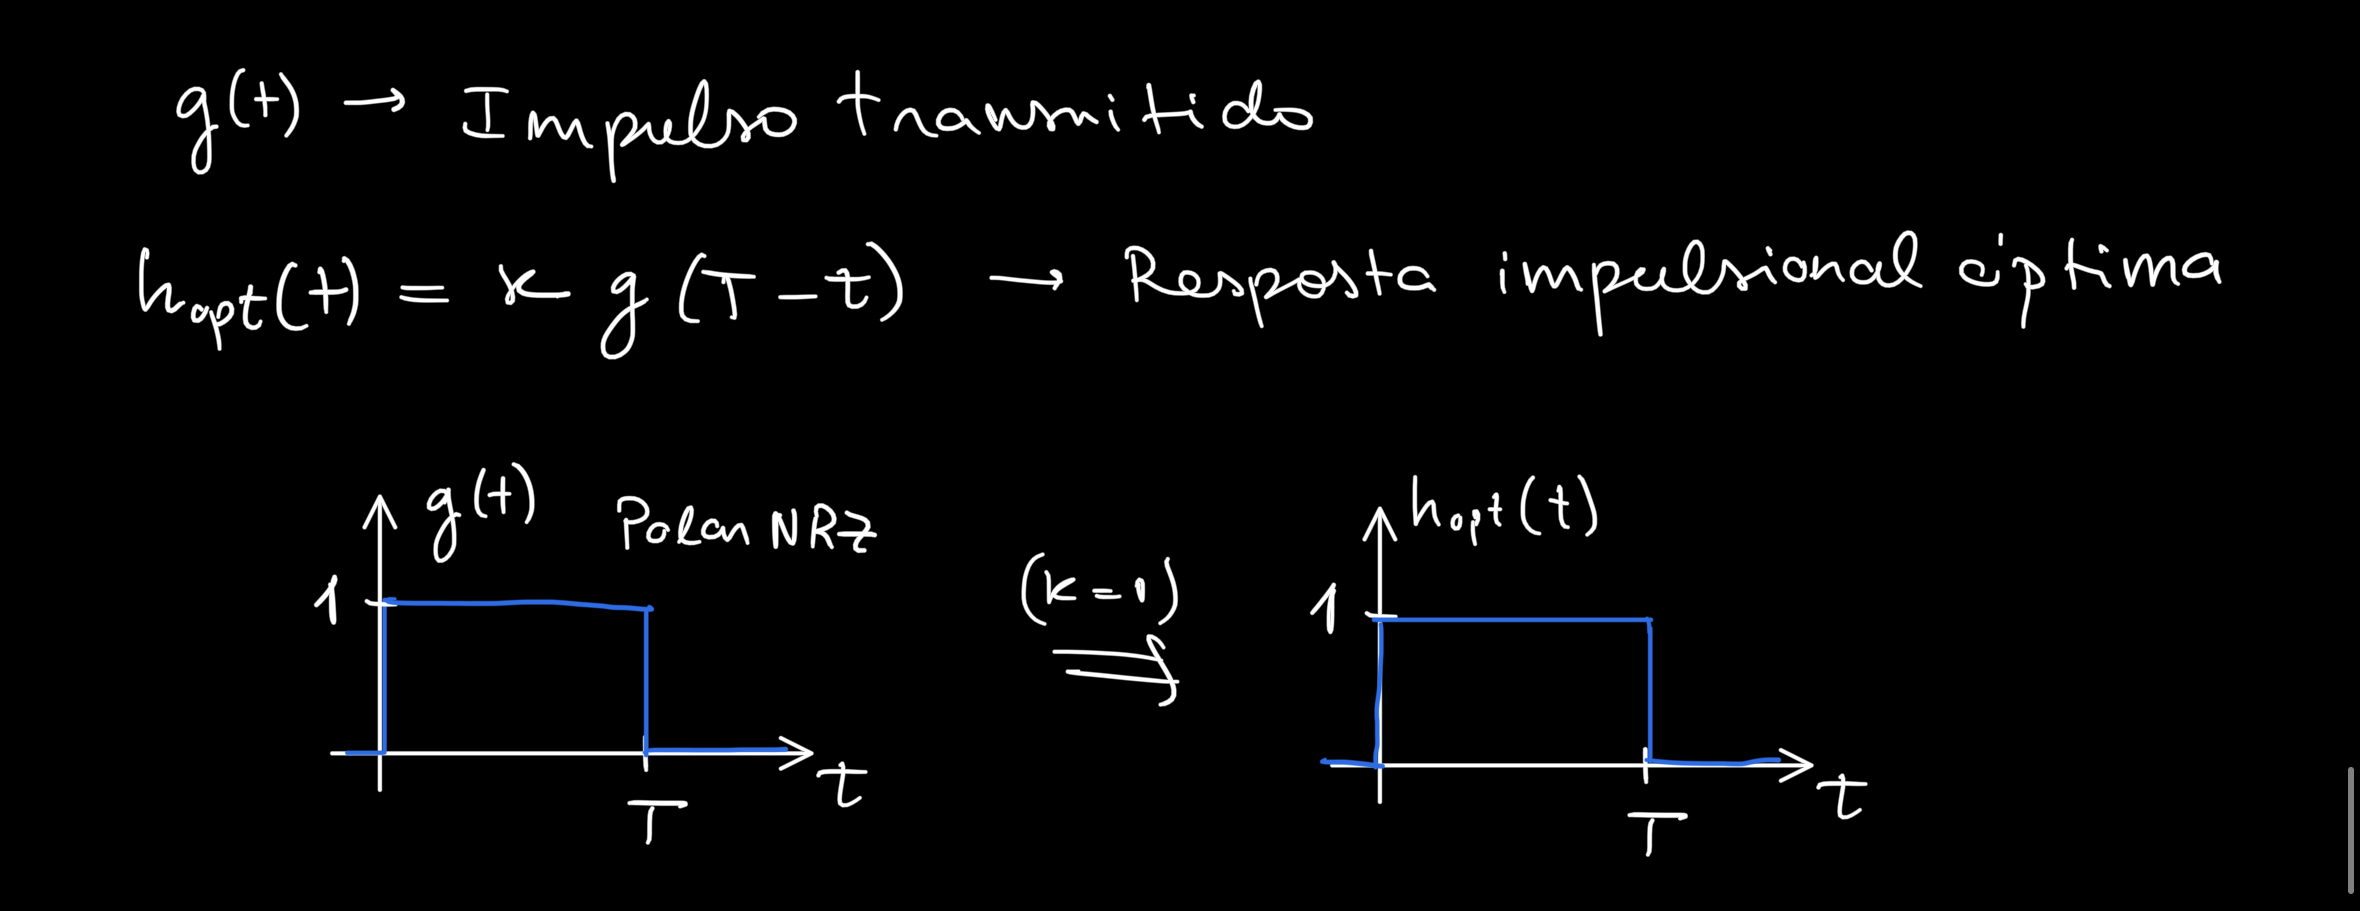 g(t) → Impulso transmitido
hopt(t) = k g (T - t) → Resposta impulsional óptima
g(t) Polar NRZ
hopt(t)
1
(k=1)
⇒
1
t
T
t
T